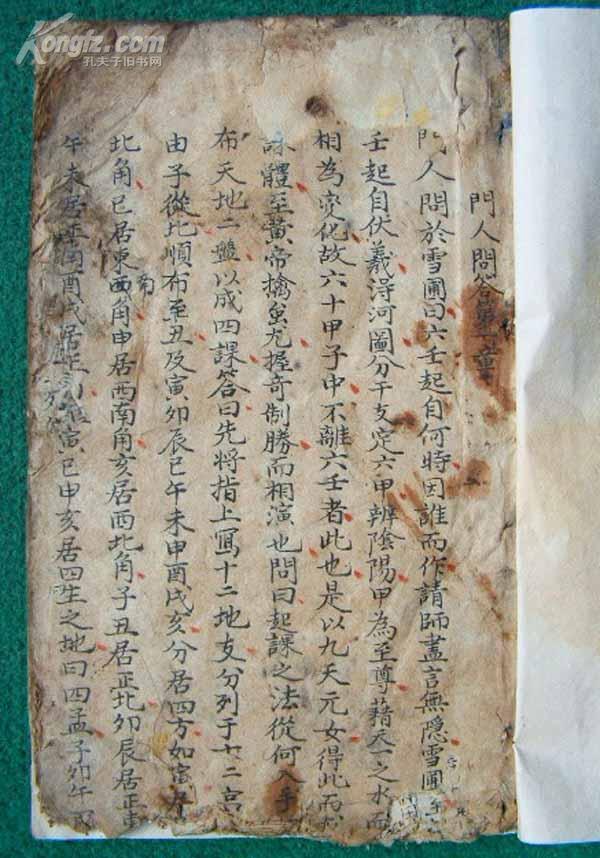 門人問答第一章
門人問於雪圃曰六壬起自何時因誰而作請師盡言無隱雪圃
壬起自伏羲得河圖分干支定六甲辨陰陽甲為至尊藉天一之水而
相為变化故六十甲子中不離六壬者此也是以九天元女得此而
課體至黃帝擒蚩尤握奇制勝而相演也問曰起課之法從何入手
布天地二盤以成四課答曰先將指上寫十二地支分列于十二宮
由子從北順布至丑及寅卯辰巳午未申酉戌亥分居四方如寅居
北角巳居東南角申居西南角亥居西北角子丑居正北卯辰居正東
午未居正南酉戌居正寅巳申亥居四生之地曰四孟子卯午
Kongfz.com
孔夫子旧书网